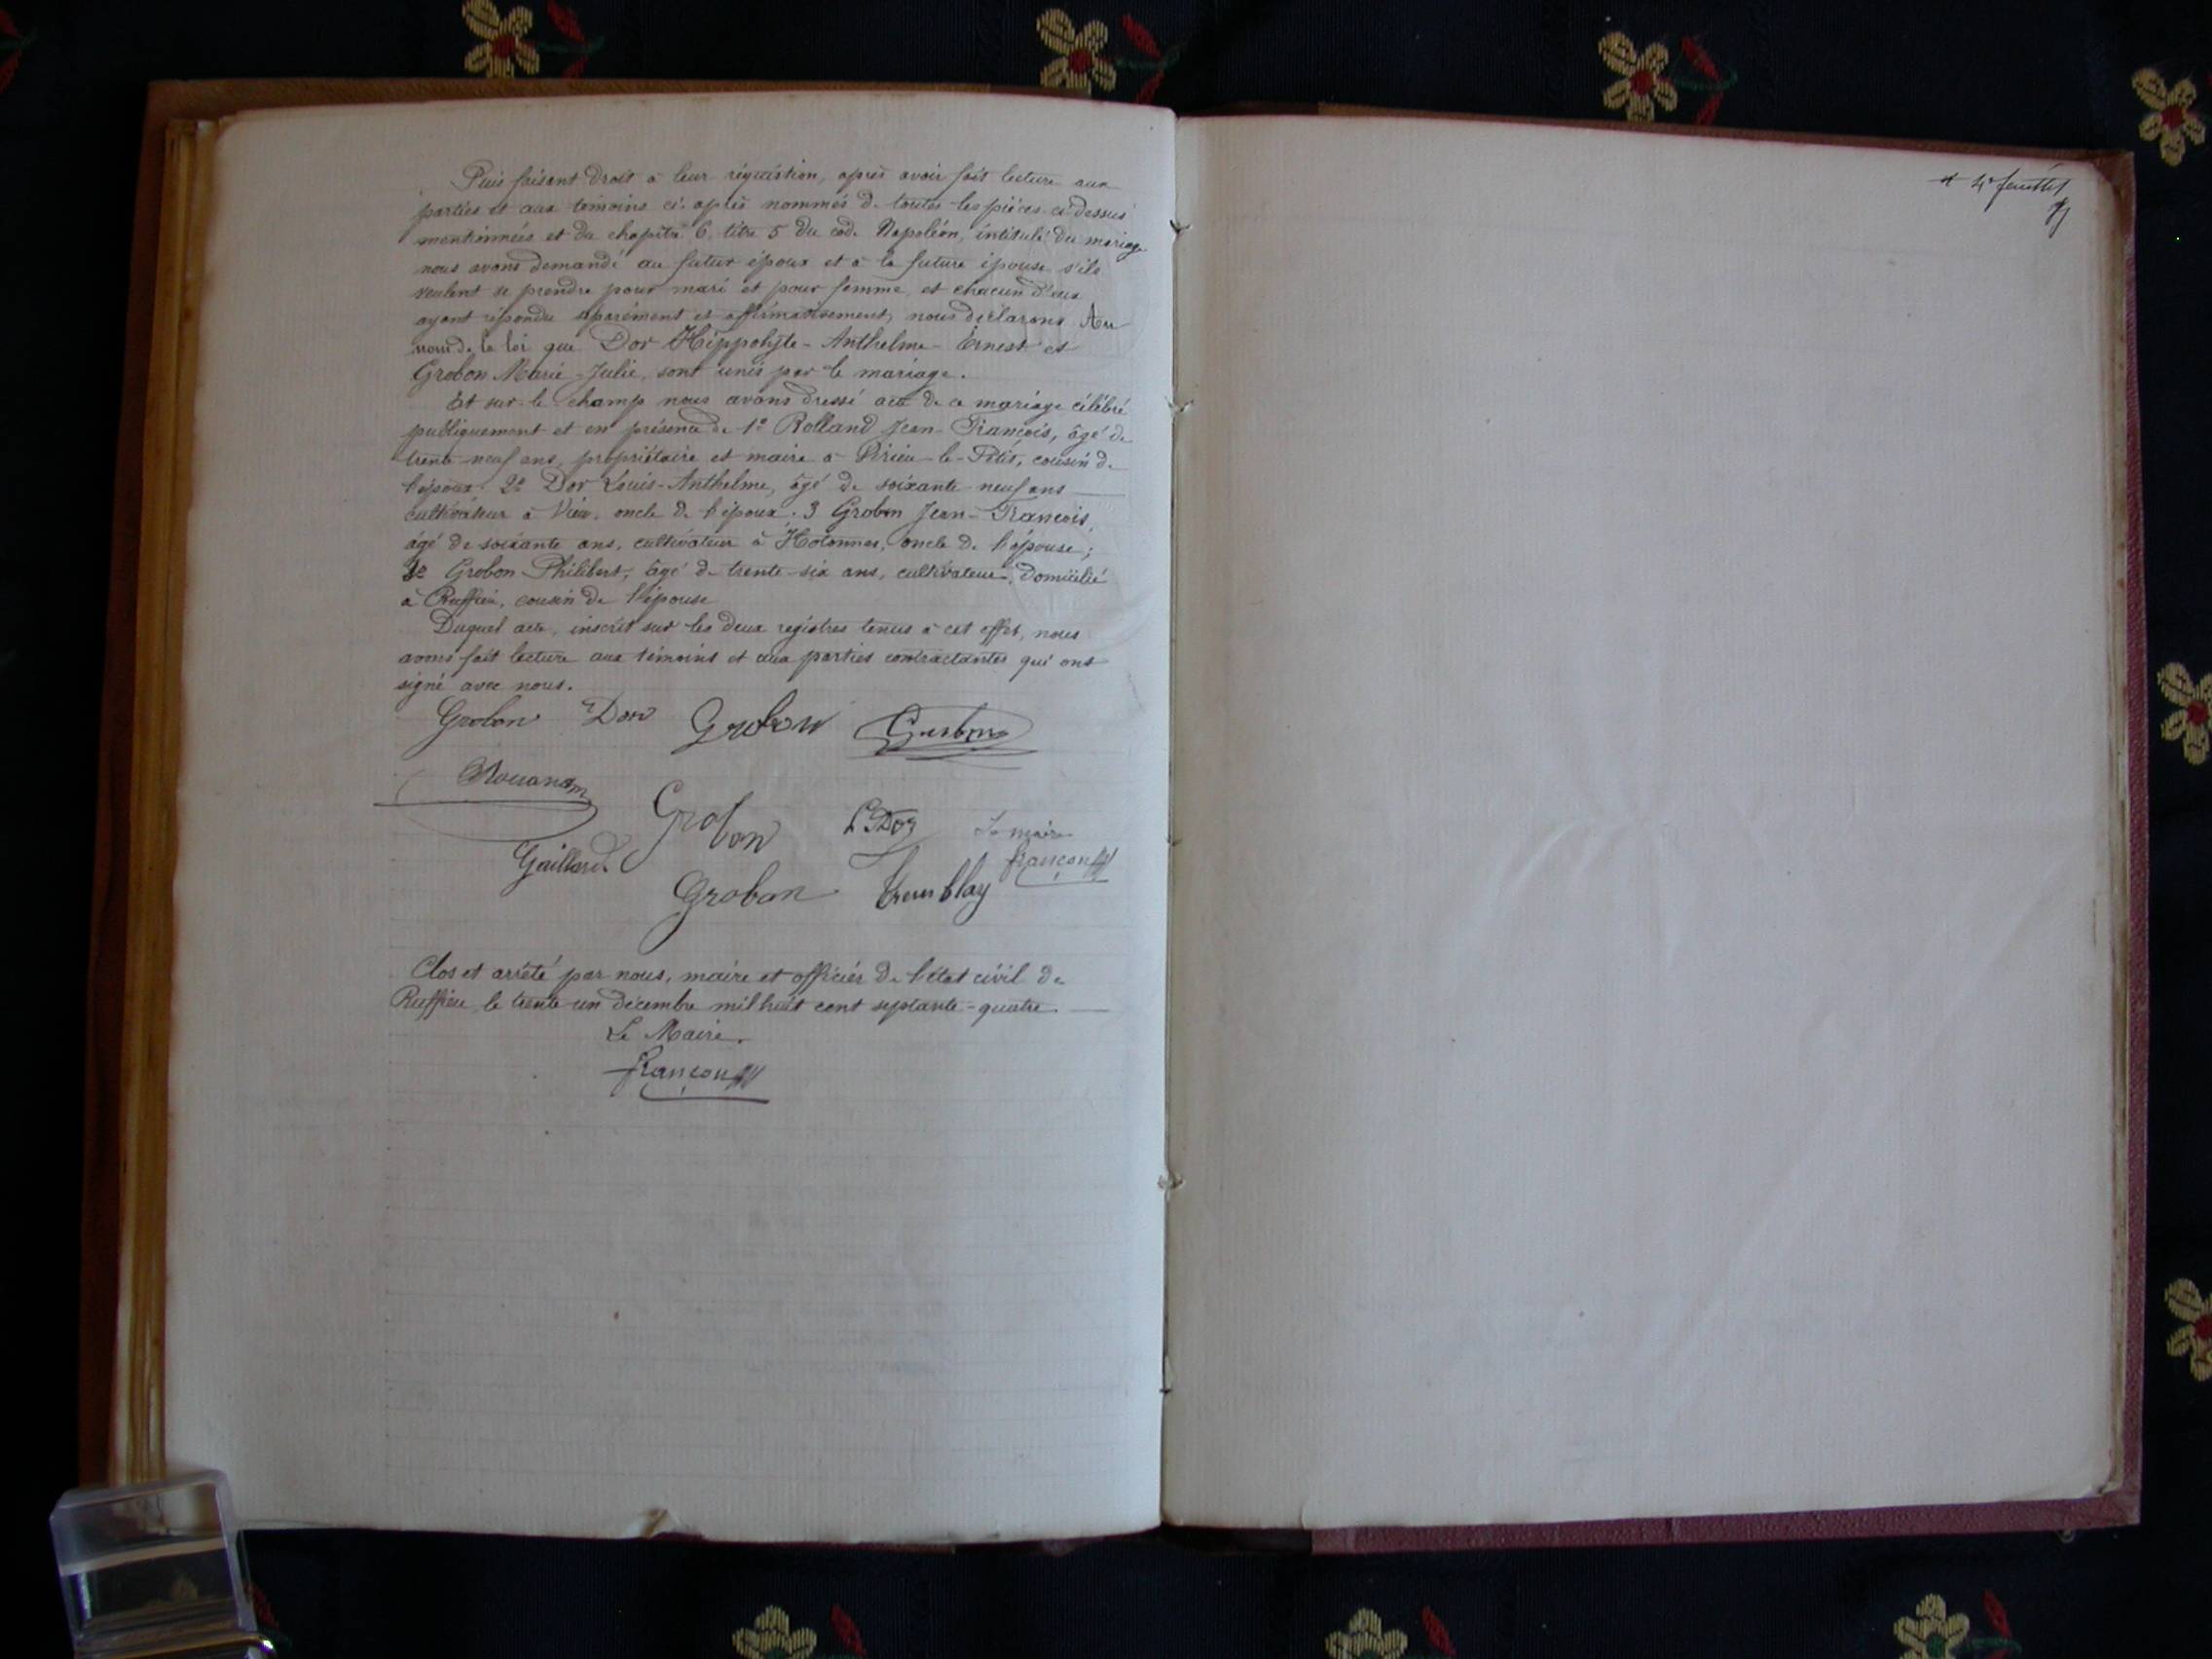 Puis faisant droit à leur réquisition, après avoir fait lecture aux
parties et aux temoins ci-après nommés de toutes les pièces ci-dessus
mentionnées et du chapitre 6 titre 5 du code Napoléon, intitulé du mariage
nous avons demandé au futur époux et à la future épouse s'ils
veulent se prendre pour mari et pour femme, et chacun d'eux
ayant répondu séparément et affirmativement, nous déclarons Au
nom de la loi que Dor Hippolyte-Anthelme-Ernest et
Grobon Marie-Julie, sont unis par le mariage.
Et sur le champ nous avons dressé acte de ce mariage célébré
publiquement et en présence de 1° Rolland Jean-François, âgé de
trente-neuf ans, propriétaire et maire à le-Petit, cousin de
l'époux. 2° Dor Louis-Anthelme, âgé de soixante-neuf ans
cultivateur à Vieu, oncle de l'époux. 3 Grobon Jean-François,
âgé de soixante ans, cultivateur à Hotonnes, oncle de l'épouse;
Grobon Philibert, âgé de trente-six ans, cultivateur, domicilié
à Ruffieu, cousin de l'épouse
Duquel acte, inscrit sur les deux registres tenus à cet effet, nous
avons fait lecture aux témoins et aux parties contractantes qui ont
signé avec nous.
Grobon Dor Grobon Grobon
Grobon L Dor Le maire
Gaillard françon
Grobon Tremblay
Clos et arrêté par nous, maire et officier de l'état civil de
Ruffieu, le trente un décembre mil huit cent septante-quatre.
Le Maire.
françon
4e feuillet